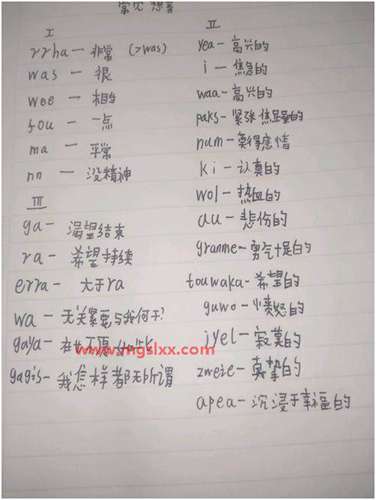 常见想音
I
rrha — 非常 (>was)
was — 很
wee — 相当
fou — 一点
ma — 平常
nn — 没精神
III
ga — 渴望结束
ra — 希望持续
erra — 大于ra
wa — 无关紧要与我何干?
gaya — 在
gagis — 我怎样都无所谓
II
yea — 高兴的
i — 焦急的
waa — 高兴的
paks — 紧张焦虑的
num — 莫得感情
ki — 认真的
wol — 热血的
au — 悲伤的
granme — 勇气十足的
touwaka — 希望的
guwo — 愤怒的
jyel — 寂寞的
zweie — 真挚的
apea — 沉浸于幸福的
www.mgslxx.com